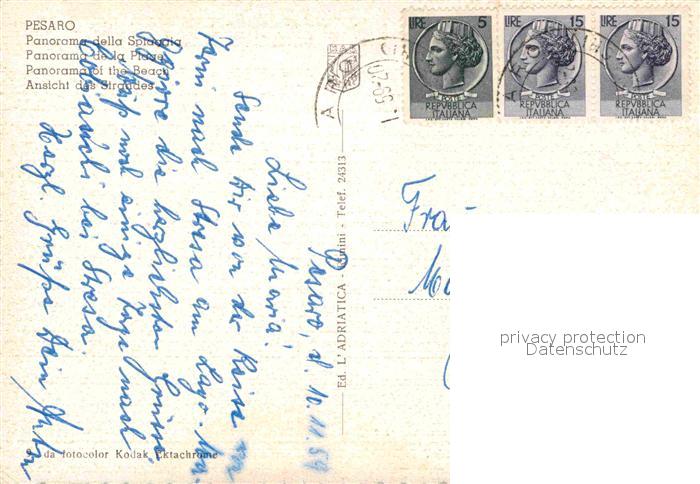 PESARO
Panorama della Spiaggia
Panorama de la Plage
Panorama of the Beach
Ansicht des Strandes
LIRE 5
POSTE
REPVBBLICA
ITALIANA
LIRE 15
POSTE
REPVBBLICA
ITALIANA
LIRE 15
POSTE
REPVBBLICA
ITALIANA
Pesaro, d. 10.11.59
Liebe Maria!
Sende Dir von der Reise von
nach Stresa am Lago
die herzlichsten Grüße
noch einige Tage nach
bei Stresa.
Herzl. Grüße Dein
Ed. L'ADRIATICA - Rimini - Telef. 24313
da fotocolor Kodak Ektachrome
privacy protection
Datenschutz